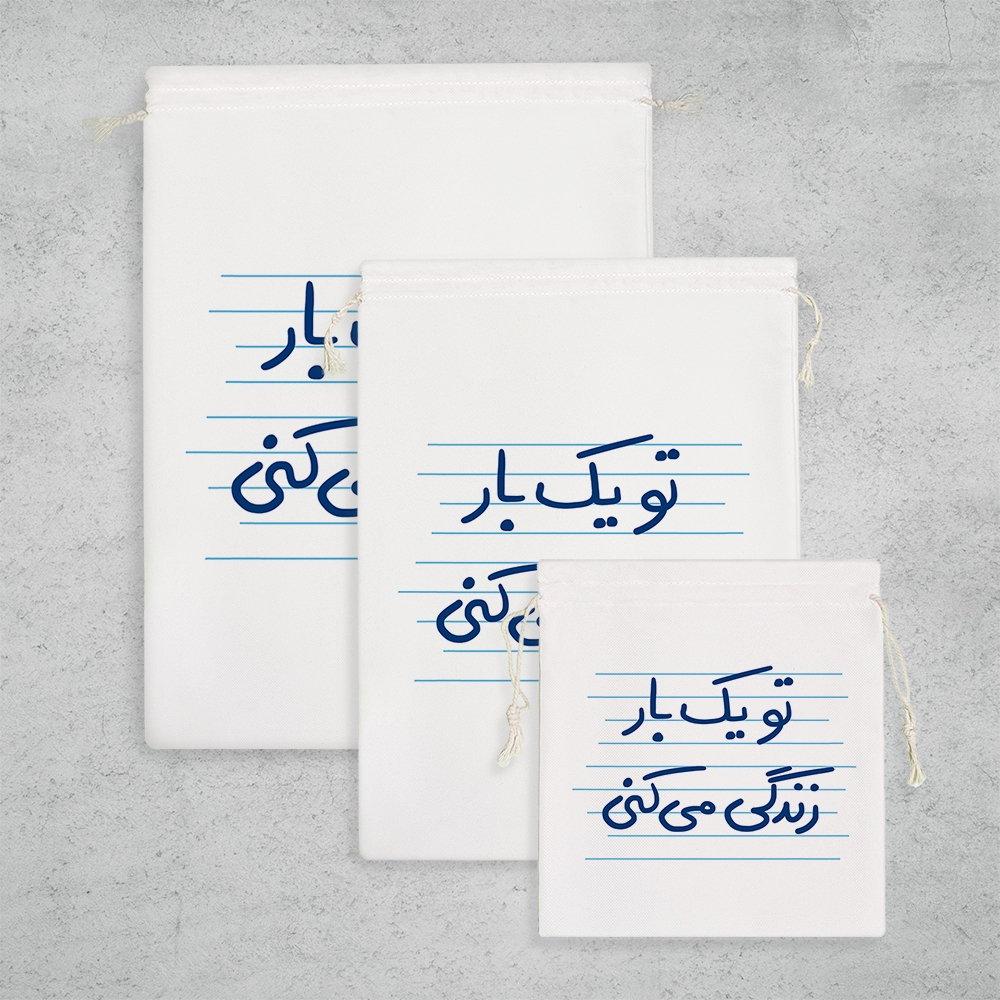 بار
ی کنی
تو یک بار
ی کنی
تو یک بار
زندگی می کنی